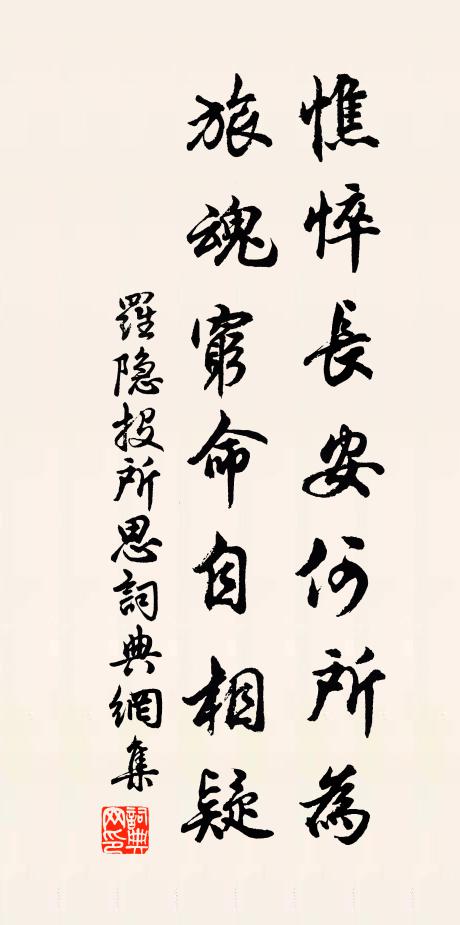 憔悴長安何所為
旅魂窮命自相疑
羅隐投所思詞典網集
詞典